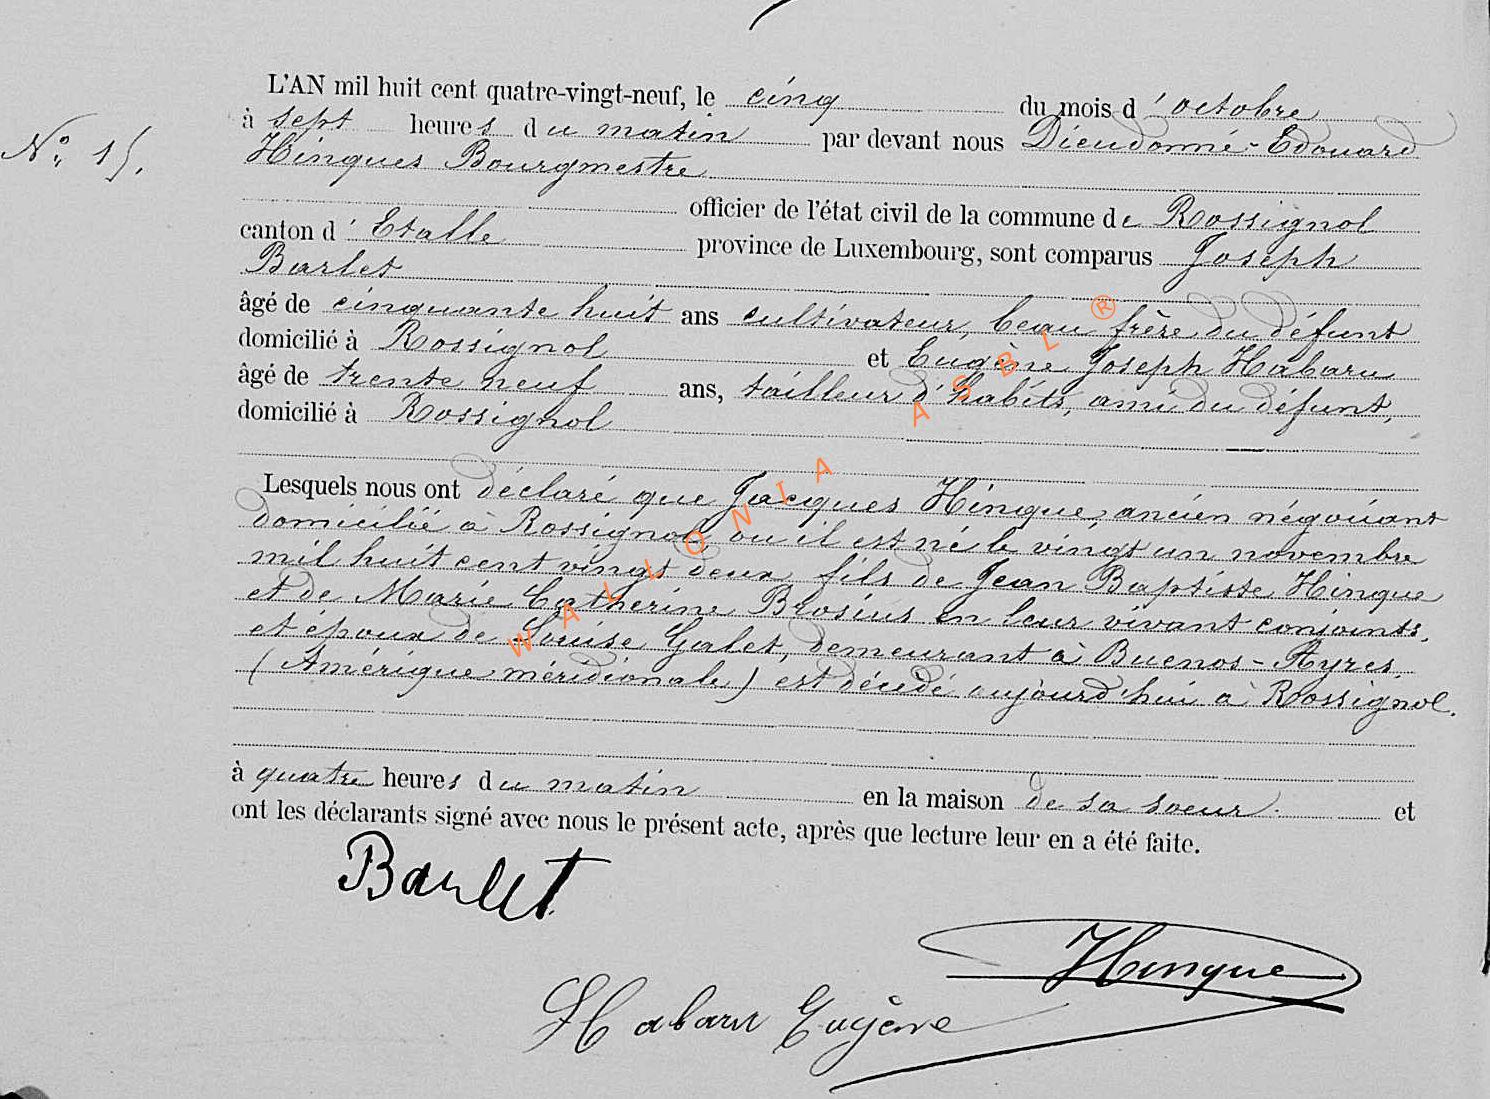 L'AN mil huit cent quatre-vingt-neuf, le cinq du mois d'octobre
Nº 15. à sept heures du matin par devant nous Dieudonné-Edouard
Hinques Bourgmestre
officier de l'état civil de la commune de Rossignol
canton d'Etalle province de Luxembourg, sont comparus Joseph
Barlet
âgé de cinquante huit ans cultivateur, beau frère du défunt
domicilié à Rossignol et Eugène Joseph Habaru
âgé de trente neuf ans, tailleur d'habits, ami du défunt,
domicilié à Rossignol
Lesquels nous ont déclaré que Jacques Hinque, ancien négociant
domicilié à Rossignol ou il est né le vingt un novembre
mil huit cent vingt deux, fils de Jean Baptiste Hinque
et de Marie Catherine Brosius en leur vivant conjoints,
et époux de Louise Galet, demeurant à Buenos-Ayres,
(Amérique méridionale) est décédé aujourd'hui à Rossignol.
à quatre heures du matin en la maison de sa soeur. et
ont les déclarants signé avec nous le présent acte, après que lecture leur en a été faite.
Barlet
Hinque
Habaru Eugène
WALLONIA ASBL ®